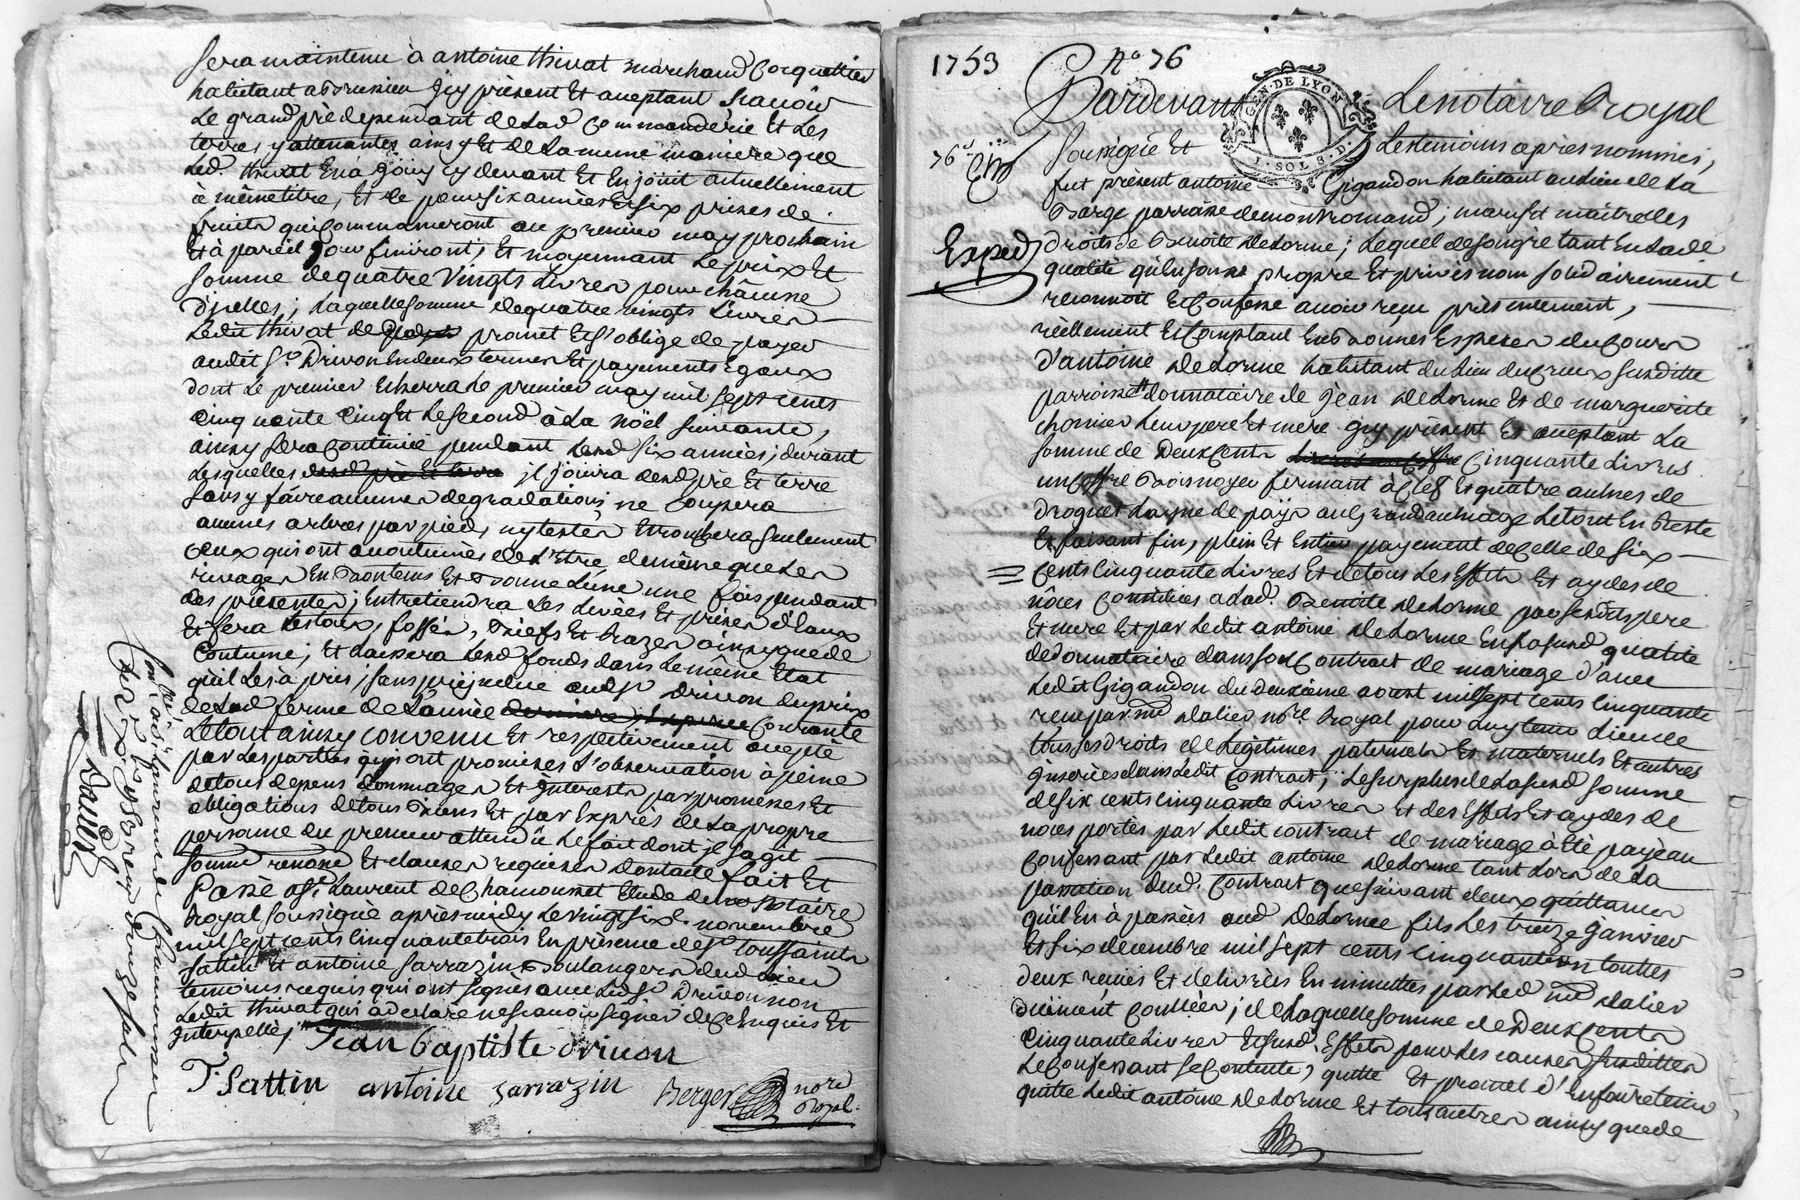 sera maintenu à antoine thivat marchand Coquettier
habitant a
jcy présent Et aceptant scavoir
Le grand prè dependant de Lad Commanderie Et Les
terres y attenantes ainsy Et de La meme maniere que
Led. thivat En à jouy cy devant Et En jouit actuellement
à même titre, Et ce pour six années Et six prises de
fruits qui Commenceront au premier may prochain
Et à pareil jour finiront; Et moyennant Le prix Et
somme de quatre Vingts Livres pour châcune
D'jcelles; Laquelle somme de quatre vingts Livres
Ledit thivat de promet Et s'oblige de payer
audit Sr. Drivon En deux termes Et payements Egaux
dont Le premier Echerra Le premier may mil sept cents
Cinquante Cinq Et Le second à La Noël suivante,
ainsy sera Continué pendant Lesd six années; durant
Lesquelles jl jouira desd pré Et terre
sans y faire aucunes degradations, ne Coupera
aucuns arbres par pied, ny tester Et Ebranchera seulement
Ceux qui ont acoutumés de L'Etre, de même que Les
rivages En Bon tems Et Bonne Lune une fois pendant
Les présentes; Entretiendra Les Levées Et prises d'Eaux
Et fera Les fossés, Biefs Et Razes ainsy que de
Coutume, Et Laissera Lesd fonds dans Le même Etat
qu'il Les à pris; sans prejudice aud Sr Drivon du prix
de Lad ferme de L'année Courante
Le tout ainsy convenu Et respectivement acepté
par Les parties qui ont promises L'observation à peine
de tous depens Dommages Et jnterests par promesses Et
obligations de tous Biens Et par Exprès de La propre
personne du preneur attendu Le fait dont jl s'agit
soumis renoncé Et clauses requises dont acte fait Et
Passé à St. Laurent de Chamousset Etude du Notaire
Royal soussigné après midy Le vingt six novembre
mil sept cents Cinquante trois En présence de Sr Toussaint
Sattin Et antoine sarrazin Boulangers dud Lieu
temoins requis qui ont signés avec Led Sr Drivon non
Ledit thivat qui à declaré ne scavoir signer de Ce Enquis Et
jnterpellé,
Jean baptiste drivon
T. Sattin antoine sarrazin Berger nore Royal.
Conlé. à St Laurent de Chamousset
1753. Reçu douze sols
1753 No 76
GEN. DE LYON
1. SOL 8. D.
Pardevant Le notaire Royal
76e
soussigné Et Les temoins après nommés,
fut présent antoine Gigandon habitant au Lieu de La
Barge parroisse de montromand, mary Et maître des
Exped
droits de Benoite Delorme; Lequel de son gré tant En Ladte
qualité qu'En son propre Et privé nom solidairement
reconnoît Et Confesse avoir reçu présentement,
réellement Et Comptant En Bonnes Espeses du Cours
d'antoine Delorme habitant du Lieu du Creux susditte
parroisse donnataire de Jean Delorme Et de marguerite
Chomier Leurs pere Et mere jcy présent Et aceptant La
somme de Deux Cents Cinquante Livres
un Coffre Bois noyer fermant à Clef Et quatre aulnes de
Droguet Layne de pays au Grand aulnage Le tout En Reste
Et faisant fin, plein Et Entier payement de Celle de six
Cents Cinquante Livres Et de tous Les Effets Et aydes de
nôces Constitués a Lad. Benoite Delorme par sesdits pere
Et mere Et par Ledit antoine Delorme En sa susd qualité
de donnataire dans son Contrat de mariage d'avec
Ledit Gigandon du deuxième aoust mil sept cents Cinquante
reçu par me Dalier nore Royal pour Luy tenir Lieu de
tous ses droits de Legitimes paternels Et maternels Et autres
jnserés dans Ledit Contrat; Le surplus de La susd somme
de six cents cinquante Livres Et des Effets Et aydes de
noces portés par Ledit contrat de mariage à été payé au
Confessant par Ledit antoine Delorme tant Lors de La
passation dud. Contrat que suivant deux quittances
qu'il En à passées aud Delorme fils Les treize janvier
Et six decembre mil sept cents Cinquante un touttes
deux reçües Et delivrées En minuttes par Led me Dalier
Düement Conllées; de Laquelle somme de Deux Cents
Cinquante Livres Et susd. Effets pour Les causes susdittes
Le Confessant se Contente, quitte Et promet d'En faire tenir
quitte Ledit antoine Delorme Et tous autres ainsy que de